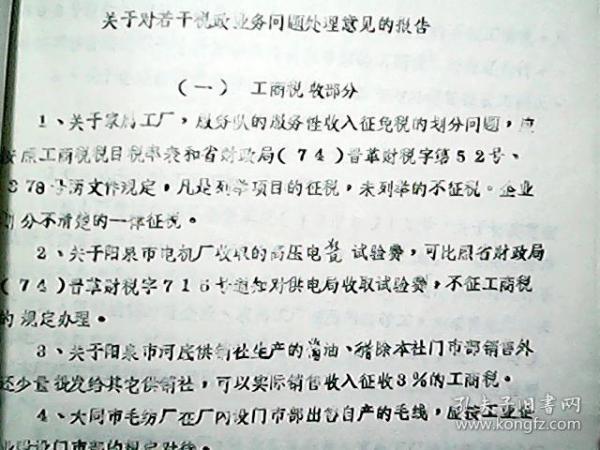 关于对若干税政业务问题处理意见的报告
(一) 工商税收部分
1、关于家属工厂,服务队的服务性收入征免税的划分问题,应
按原工商税税目税率表和省财政局(74)晋革财税字第52号、
78号两文件规定,凡是列举项目的征税,未列举的不征税。企业
划分不清楚的一律征税。
2、关于阳泉市电机厂收取的高压电瓷试验费,可比照省财政局
(74)晋革财税字715号通知对供电局收取试验费,不征工商税
的规定办理。
3、关于阳泉市河底供销社生产的酱油、醋除本社门市部销售外
还少量拨发给其它供销社,可以实际销售收入征收3%的工商税。
4、大同市毛纺厂在厂内设门市部出售自产的毛线,应按工业企
业附设门市部的规定对待。
孔夫子旧书网
www.kongfz.com